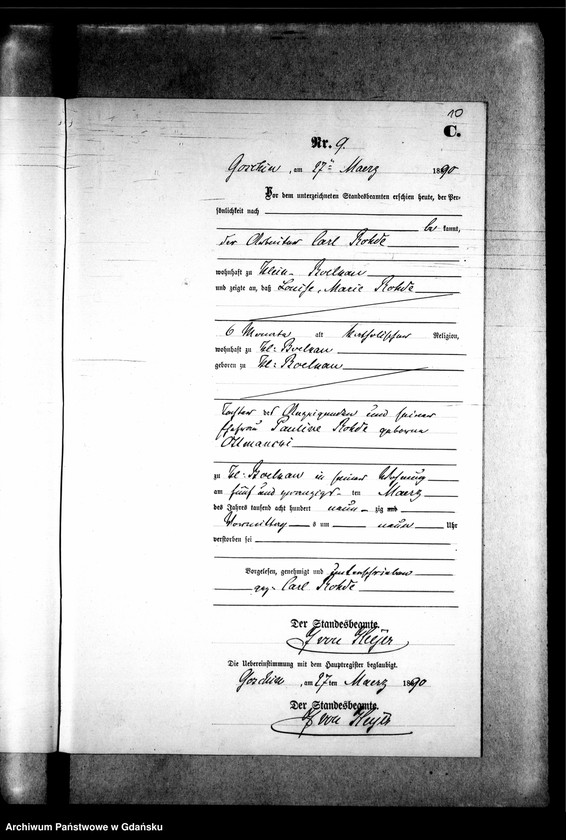 10
C.
Nr. 9.
Goschin, am 27ten Maerz 1890
Vor dem unterzeichneten Standesbeamten erschien heute, der Per-
sönlichkeit nach
be kannt,
der Arbeiter Carl Rohde
wohnhaft zu Klein-Boelkau
und zeigte an, daß Louise, Marie Rohde
6 Monate alt katholischer Religion,
wohnhaft zu Kl: Boelkau
geboren zu Kl: Boelkau
Tochter des Anzeigenden und seiner
Ehefrau Pauline Rohde geborne
zu Kl: Boelkau in seiner Wohnung
am fünf und zwanzigsten Maerz
des Jahres tausend acht hundert neun zig und
Vormittags um neun Uhr
verstorben sei
Vorgelesen, genehmigt und unterschrieben
gez. Carl Rohde
Der Standesbeamte.
von Heyer
Die Uebereinstimmung mit dem Hauptregister beglaubigt.
Goschin, am 27ten Maerz 1890
Der Standesbeamte.
von Heyer
Archiwum Państwowe w Gdańsku